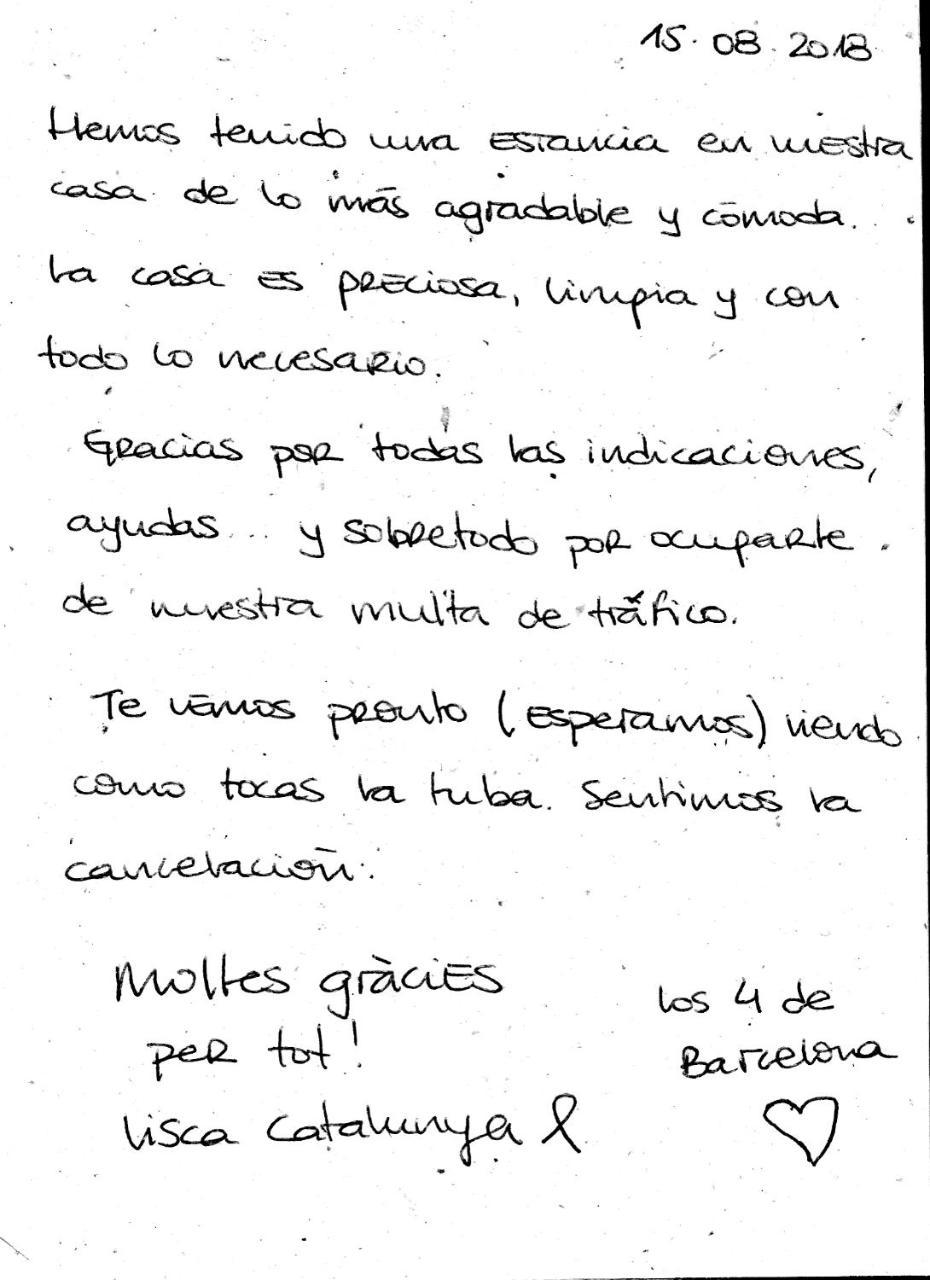 15.08.2018
Hemos tenido una estancia en vuestra
casa de lo más agradable y cómoda.
La casa es preciosa, limpia y con
todo lo necesario.
Gracias por todas las indicaciones,
ayudas... y sobretodo por ocuparte
de nuestra multa de tráfico.
Te vemos pronto (esperamos) viendo
como tocas la tuba. Sentimos la
cancelación.
Moltes gràcies
per tot!
Visca Catalunya
Los 4 de
Barcelona